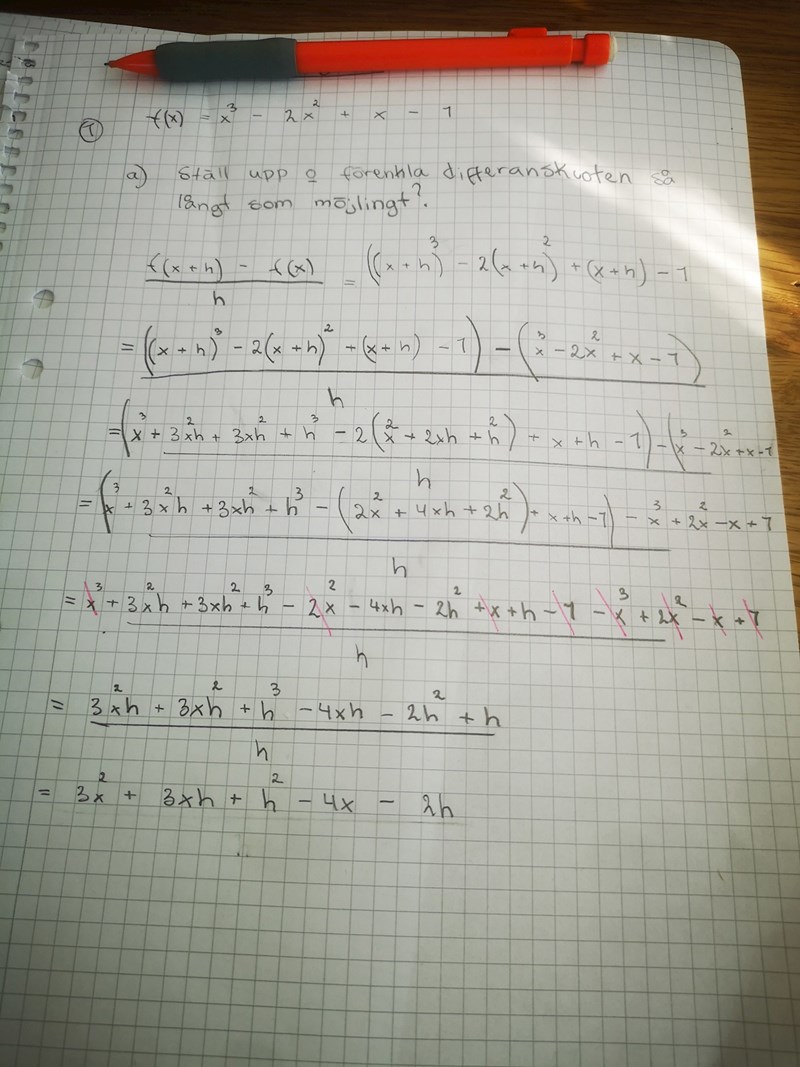 ① f(x) = x³ - 2x² + x - 1
a) Ställ upp o förenhla differanskvoten så
långt som möjlingt?.
f(x+h) - f(x) / h = ((x+h)³ - 2(x+h)² + (x+h) - 1
= ((x+h)³ - 2(x+h)² + (x+h) - 1) - (x³ - 2x² + x - 1) / h
= (x³ + 3x²h + 3xh² + h³ - 2(x² + 2xh + h²) + x + h - 1) - (x³ - 2x² + x - 1 / h
= (x³ + 3x²h + 3xh² + h³ - (2x² + 4xh + 2h²) + x + h - 1) - x³ + 2x² - x + 1 / h
= x³ + 3x²h + 3xh² + h³ - 2x² - 4xh - 2h² + x + h - 1 - x³ + 2x² - x + 1 / h
= 3x²h + 3xh² + h³ - 4xh - 2h² + h / h
= 3x² + 3xh + h² - 4x - 2h